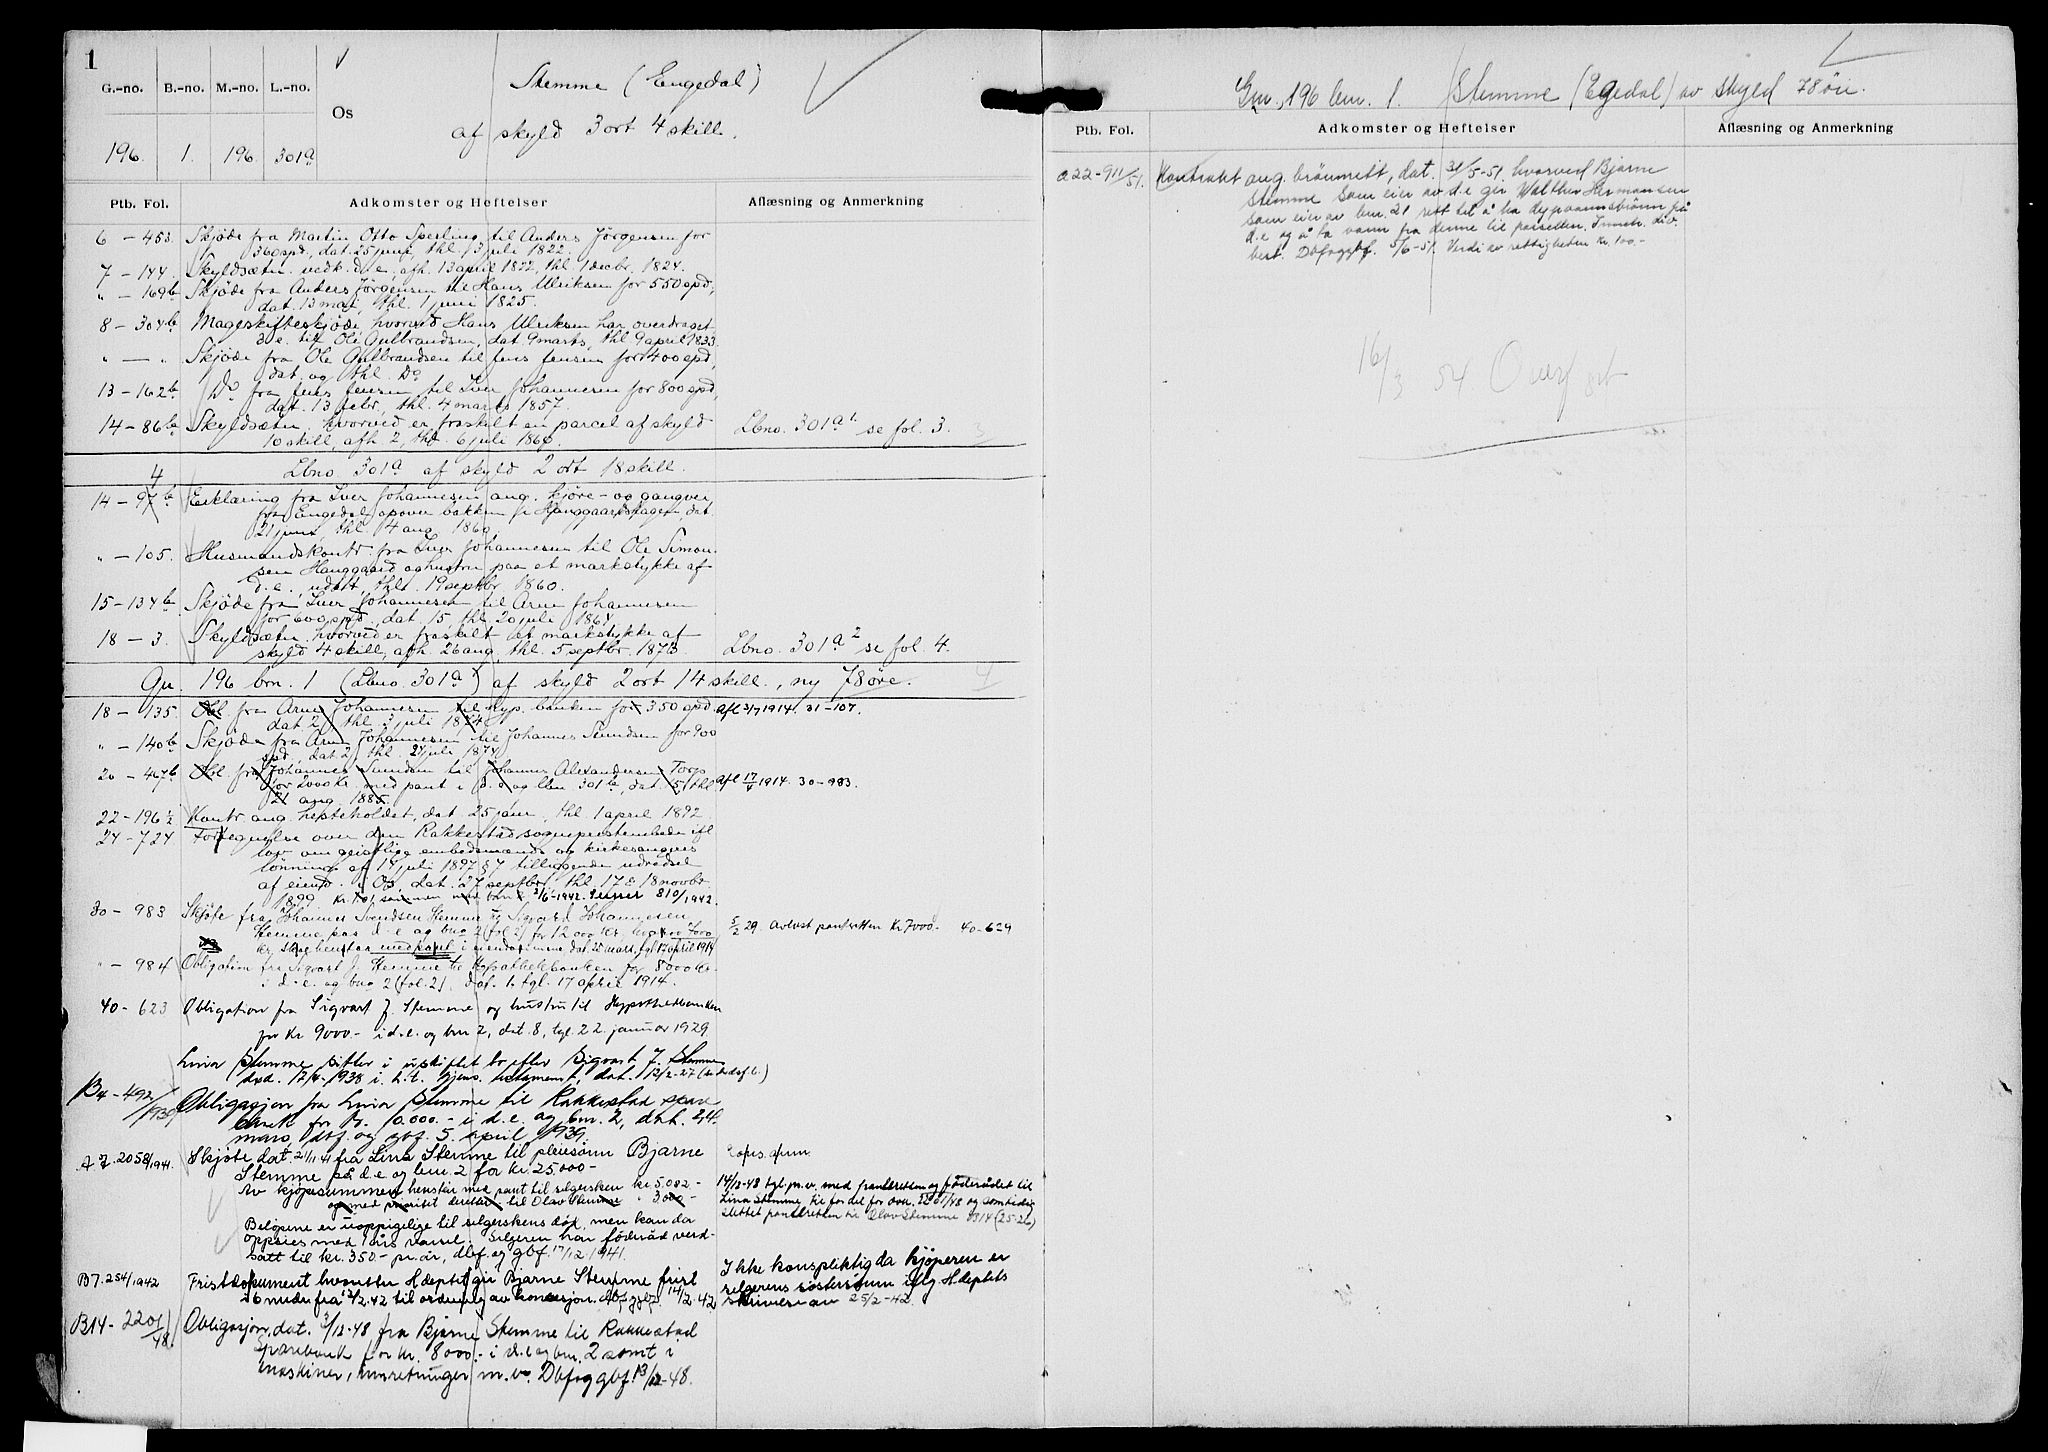 1
G.-no. B.-no. M.-no. L.-no.
196. 1. 196. 301a
Os
Stemme (Engedal)
af skyld 3 ort 4 skill.
Ptb. Fol. Adkomster og Heftelser Aflæsning og Anmerkning
6 - 453. Skjøde fra Martin Otto Sperling til Anders Jörgensen for
360 spd., dat. 25 juni, thl. 13 juli 1822.
7 - 144. Skyldsætn. vedk. d.e., afh. 13 april 1822, thl. 1 decbr. 1824.
" - 169b Skjöde fra Anders Jörgensen til Hans Ulriksen for 550 spd.,
dat. 13 mai, thl. 1 juni 1825.
8 - 304b Mageskifteskjöde, hvorved Hans Ulriksen har overdraget
d.e. til Ole Gulbrandsen, dat. 9 marts, thl. 9 april 1833.
" - " Skjöde fra Ole Gulbrandsen til Jens Jensen for 400 spd,
dat. og thl. Do
13 - 162b Do fra Jens Jensen til Iver Johannesen for 800 spd,
dat. 13 febr., thl. 4 marts 1857.
14 - 86b Skyldsætn. hvorved er fraskilt en parcel af skyld
10 skill, afh. 2, thl. 6 juli 1860. Lbno. 301a1 se fol. 3.
Lbno. 301a af skyld 2 ort 18 skill.
14 - 97b Erklæring fra Iver Johannesen ang. kjöre- og gangvei
fra Engedal opover bakken dat.
21 juni, thl. 4 aug. 1860
" - 105. Husmandskontr. fra Iver Johannesen til Ole Simon-
sen Hauggaard og hustru paa et markstykke af
d.e., udat, thl. 19 septbr. 1860.
15 - 134b Skjöde fra Iver Johannesen til Arne Johannesen
for 600 spd., dat. 15, thl. 20 juli 1864
18 - 3. Skyldsætn. hvorved er fraskilt et markstykke af
skyld 4 skill, afh. 26 aug, thl. 5 septbr. 1873. Lbno. 301a2 se fol. 4.
Gn. 196 brn. 1 (Lbno. 301a) af skyld 2 ort 14 skill., ny 78 øre.
18 - 135. Obl. fra Arne Johannesen til Hyp. banken for 350 spd. afl 3/7 1914. 31-107.
dat 2, thl. 3 juli 1874.
" - 140b Skjöde fra Arne Johannesen til Johannes Svendsen for 900
spd., dat. 2, thl. 24 juli 1874
20 - 467b Obl. fra Johannes Svendsen til Johannes Alexandersen Torp
for 2000 Kr. med pant i d.e. og lbn 301b, dat. 15, thl. afl 17/4 1914. 30-983.
21 aug. 1885.
22 - 196½ Kontr. ang. hesteholdet, dat. 25 jan., thl. 1 april 1892
24 - 724 Fortegnelse over den Rakkestad sogneprestembede ifl.
lov om geistlige embedsmænds og kirkesangeres
lönning af 14 juli 1897 § 7 tilliggende udredsel
af eiend. i Os, dat. 27 septbr., thl. 17 & 18 novbr.
1899.
30 - 983 Skjøte fra Johannes Svendsen Stemme til Sigvard Johannesen
Stemme paa d.e. og bno 2 (fol. 2) for 12,000 kr. hvorav 7000
kr. skal henstaa med pant i eiendommene, dat. 28 mars, tgl. 17 april 1914
5/2 29. Avlest panteretten kr. 7000. 40-629
" - 984 Obligation fra Sigvart J. Stemme til Hypothekbanken for 8000 kr.
i d.e. og bno 2 (fol. 2), dat. 1, tgl. 17 april 1914.
40 - 623 Obligation fra Sigvart J. Stemme og hustru til Hypothekbanken
for Kr 9000.- i d.e. og bno 2, dat. 8, tgl. 22. januar 1929.
Lina Stemme sitter i uskiftet bo efter Sigvart J. Stemme
død. 17/4-1938 i h.t. gjens. testament, dat. 12/2-27
B4 - 492/1939 Obligasjon fra Lina Stemme til Rakkestad spare-
bank for kr. 10.000.- i d.e. og bnr. 2, dat. 24.
mars, dbf. og gbf. 5. april 1939.
A7. 2058/1941. Skjøte dat. 21/11-41 fra Lina Stemme til pleiesønn Bjarne
Stemme på d.e. og bnr. 2 for kr. 25.000-
Av kjøpesummen henstår med pant til selgersken kr. 5.082-
og med prioritet deretter til Olav Stemme " 3000-
Beløpene er uoppsigelige til selgerskens død, men kan da
oppsies med 1 års varsel. Selgeren har føderåd verd-
satt til kr. 350- pr. år, dbf. og gbf. 17/12 1941.
14/12-48 tgl. pr. v. med panteretten og føderådet til
Lina Stemme for obl. 2201/48 og samtidig
slettet panteretten til Olav Stemme
B7. 254/1942 Fristdokument hvoretter H.deptet gir Bjarne Stemme frist
i 6 mndr. fra 2/2.42 til ordning av konsesjon. dbf. ggbf. 14/2.42.
Ikke konspliktig da kjøperen er
selgerens søstersønn iflg. H.deptets
skrivelse av 25/2-42.
B14 - 2201/48. Obligasjon, dat. 3/12-48 fra Bjarne Stemme til Rakkestad
Sparebank for kr. 8000.- i d.e. og bnr. 2 samt i
maskiner, innretninger m.v. Dbf og gbf. 13/12-48.
Gnr. 196 bnr. 1. Stemme (Egedal) av skyld 78 öre.
Ptb. Fol. Adkomster og Heftelser Aflæsning og Anmerkning
a22-911/51. Kontrakt ang. brönnrett, dat. 31/5-51. hvorved Bjarne
Stemme som eier av d.e. gir Walther Hermansen
som eier av bnr. 21 rett til å ha dypvannsbrönn på
d.e og å ta vann fra denne til parsellen. Inneh. div.
best. Dbfoggbf. 5/6-51. Verdi av rettigheten kr. 100.-
16/3 54. Overført